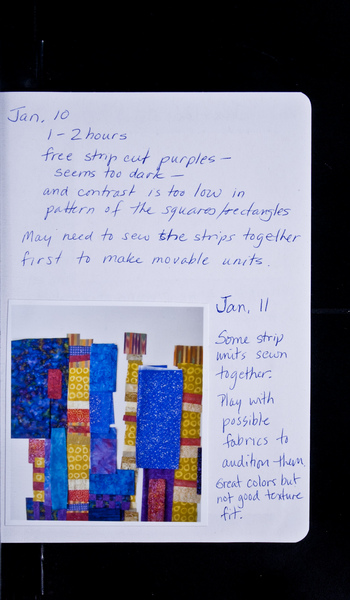 Jan. 10
1-2 hours
free strip cut purples –
seems too dark –
and contrast is too low in
pattern of the squares/rectangles
May need to sew the strips together
first to make movable units.
Jan, 11
Some strip
units sewn
together.
Play with
possible
fabrics to
audition them.
Great colors but
not good texture
fit.